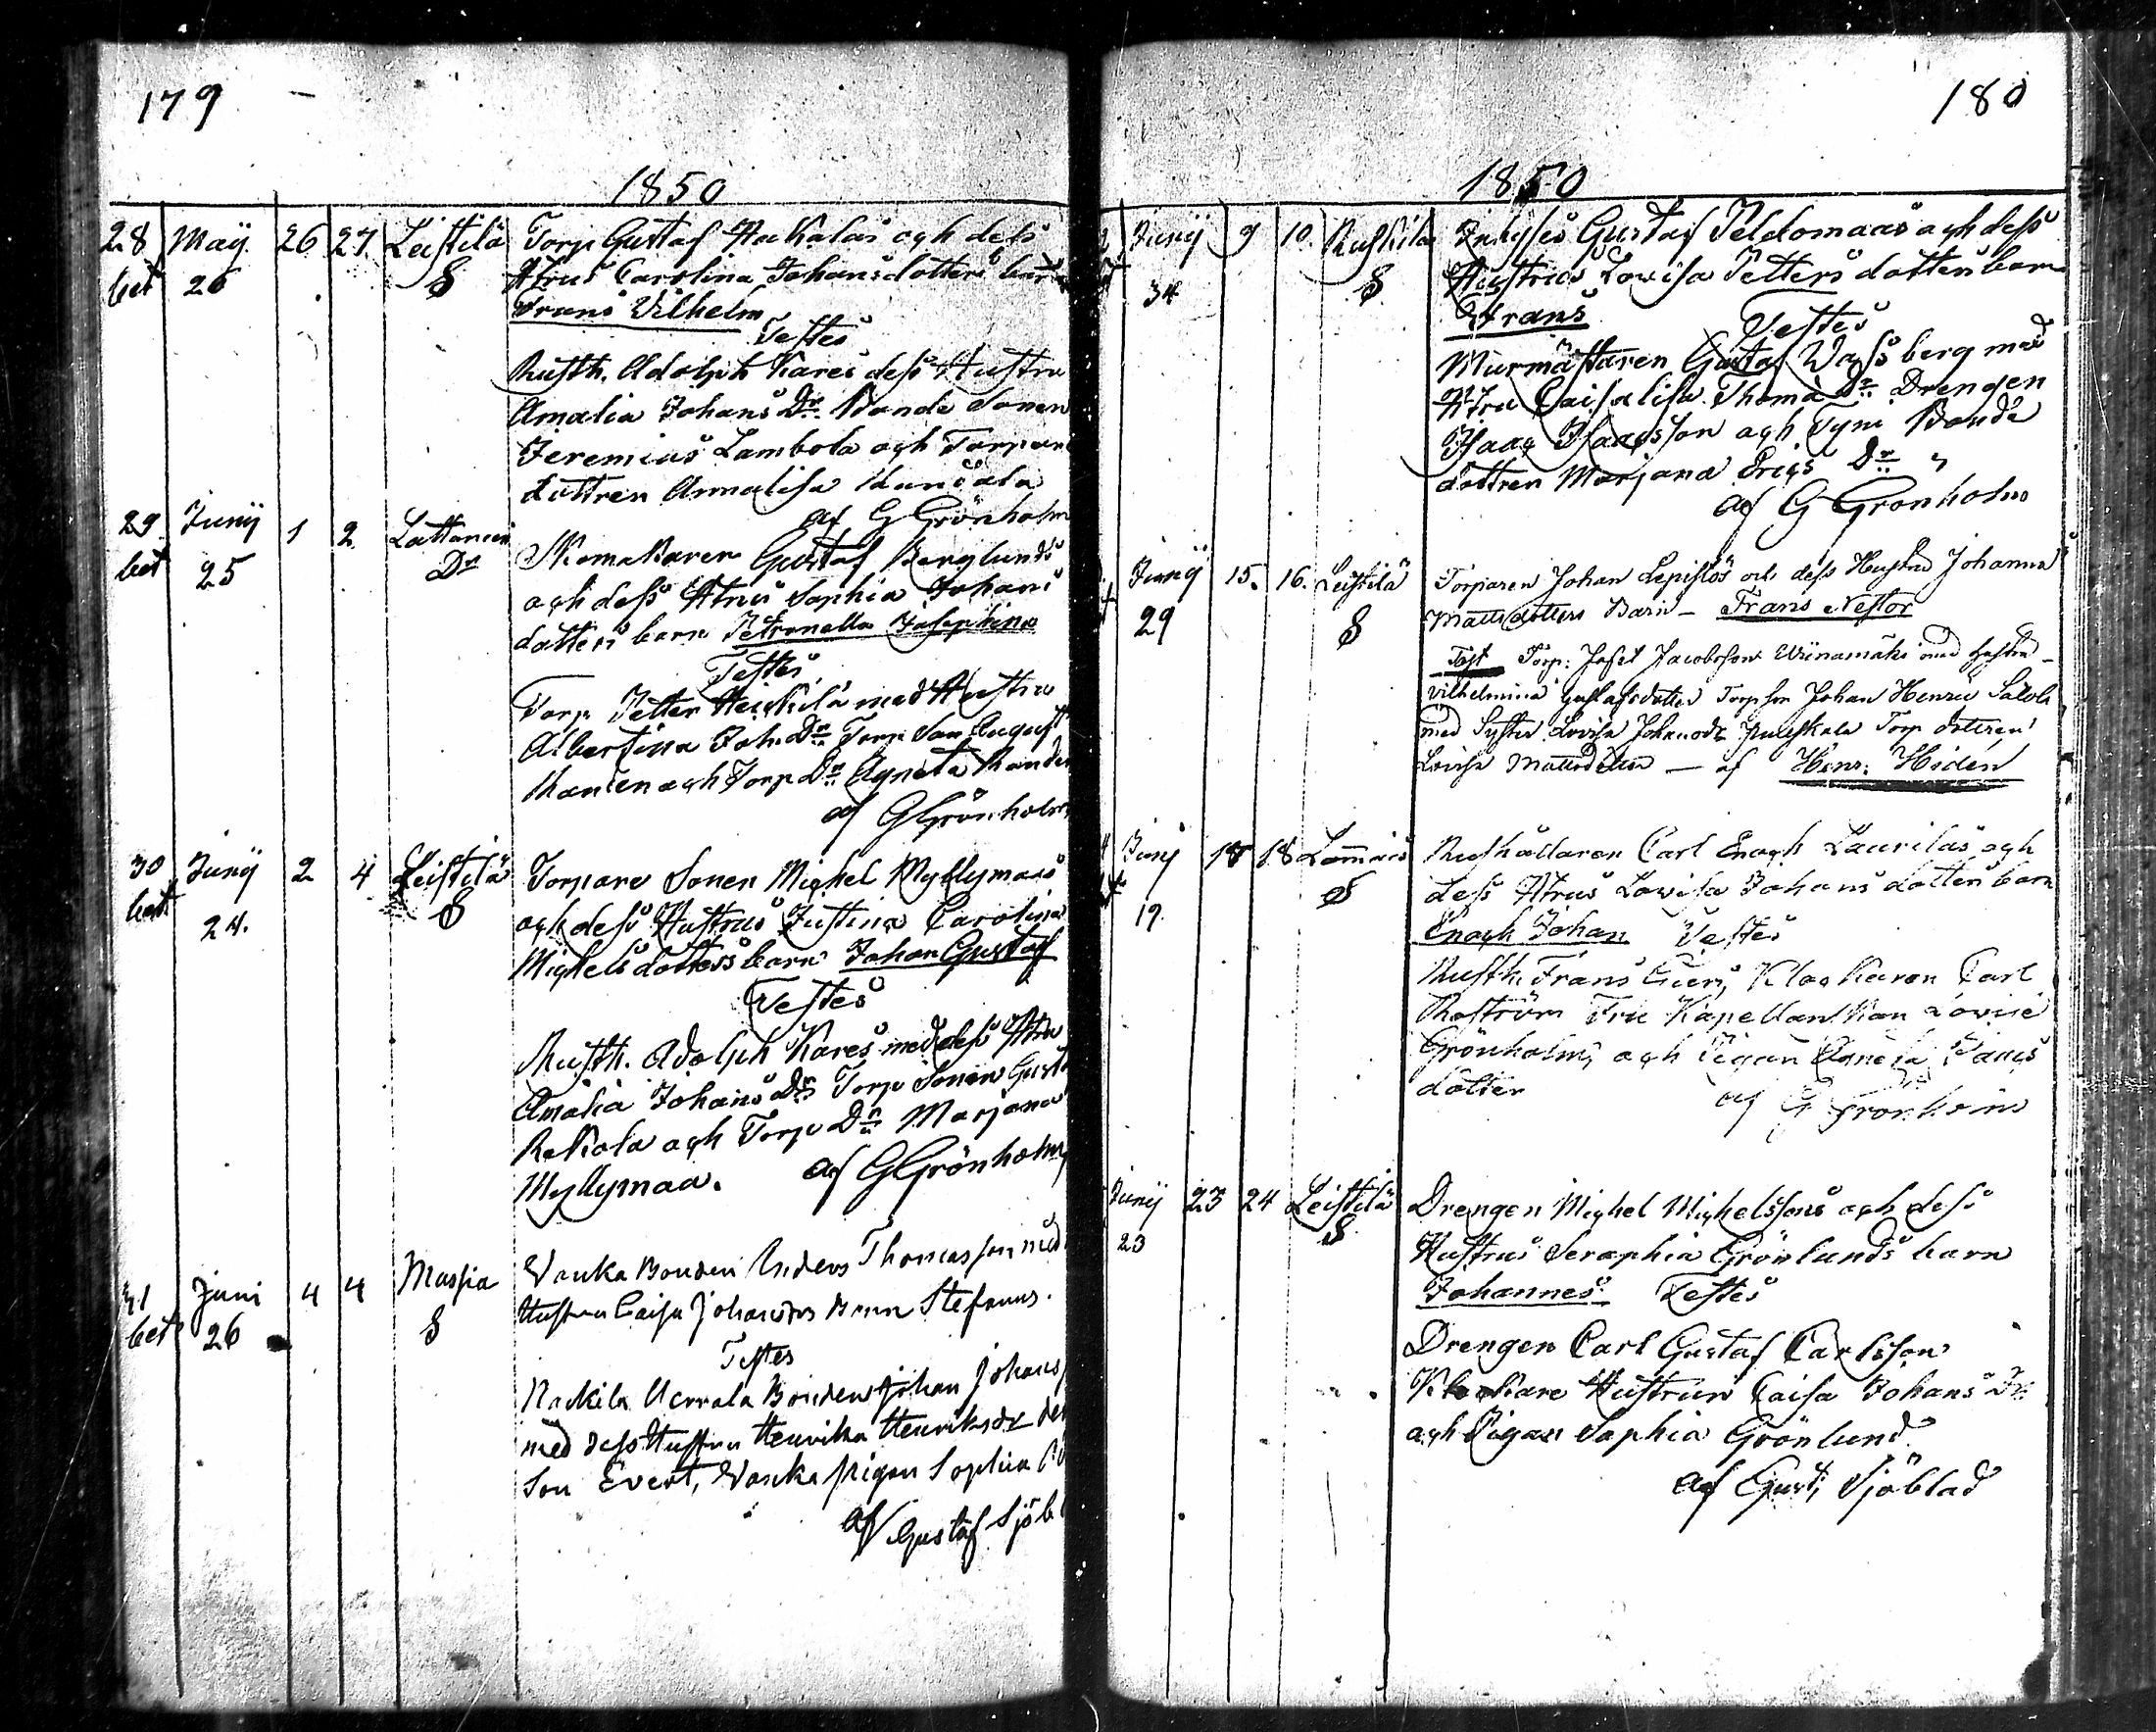 179
1850
28 Maÿ 26 27. Leistilä Torp Gustaf Hakalas och dess
bet 26 S Htrus Carolina Johansdotters barn
Frans Vilhelm
Testes
Rusth. Adolph Kares dess Hustru
Amalia Johans Dr. Bonde Sonen
Jeremias Lambola och Torpare
dottren Annalisa
af G Grönholm
29 Junÿ 1 2. Skomakaren Gustaf Berglunds
bet 25 Dr och dess Htrus Sophia Johans
dotters barn Petronella Josephina
Testes
Torp Petter Heickilä med Hustru
Albertina Joh. Dr Torp Son August
och Torp Dr Agneta
af G Grönholm
30 Junÿ 2 4 Leistilä Torpare Sonen Michel Myllymaas
bet 24. S och dess Hustrus Justina Carolina
Michelsdotters barn Johan Gustaf
Testes
Rusth. Adolph Kares med dess Htru
Amalia Johans Dr Torp Sonen Gust
Rekola och Torp Dr Marjana
Myllymaa. af G Grönholm
31 Juni 4 4 Massia Vanka Bonden Anders Thomasson med
bet 26 S Hustru Caisa Johansdrs Barn Stefanus.
Testes
Bonden Johan Johanss
med dess Hustru Henrika Henriksdr
Son Evert, Vanka pigan Sophia
af Gustaf Sjöbl
180
1850
Junÿ 9 10. Inhyses Gustaf Peldomaas och dess
34 S Hustrus Lovisa Petters dotters barn
Frans
Testes
Murmästaren Gustaf Wassberg med
Htru Caisalisa Thoma Dr. Drengen
Isaac Isaacsson och Bonde
dottren Marjana Erics Dr
af G Grönholm
Junÿ 15. 16. Leistilä Torparen Johan Lepistös och dess Hustru Johanna
29 S Mattsdotters Barn – Frans Nestor
Test Torp: Josef Jacobsson Wiinamäki med Hustru
Vilhelmina Gustafsdotter Torpson Johan Henric
med Syster Lovisa Johansdr Torp dottren
Lovisa – af Henr: Hidén
Junÿ 18 18 Rusthållaren Carl Enoch Laurilas och
19. S dess Htrus Lovisa Johans dotters barn
Enoch Johan Testes
Rusth. Frans Klockaren Carl
Roström Fru Kapellanskan Lovise
Grönholm, och Pigan
dotter af G Grönholm
Junÿ 23 24 Leistilä Drengen Michel Michelssons och dess
23 S Hustrus Seraphia Grönlunds barn
Johannes. Testes
Drengen Carl Gustaf Carlsson
Klockare Hustrun Caisa Johans Dr.
och Pigan Sophia Grönlund
af Gust; Sjöblad